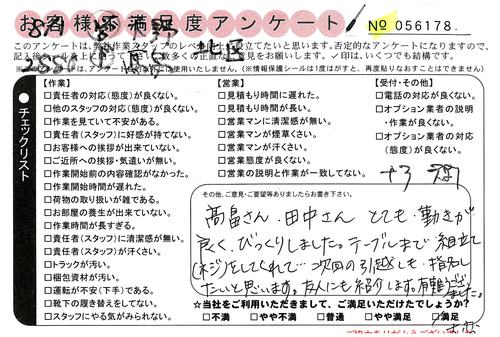 お客様不満足度アンケート
№ 056178
このアンケートは、弊社作業スタッフのレベル向上に役立てたいと思います。否定的なアンケートになりますので、
チェックリスト
【作業】
□責任者の対応(態度)が良くない。
□他のスタッフの対応(態度)が良くない。
□作業を見ていて不安がある。
□責任者(スタッフ)に好感が持てない。
□お客様への挨拶が出来ていない。
□ご近所への挨拶・気遣いが無い。
□作業開始前の内容確認がなかった。
□作業開始時間が遅れた。
□荷物の取り扱いが雑である。
□お部屋の養生が出来ていない。
□作業時間が長すぎる。
□責任者(スタッフ)に清潔感が無い。
□責任者(スタッフ)が汗くさい。
□トラックが汚い。
□梱包資材が汚い。
□運転が不安(下手)である。
□靴下の履き替えをしてない。
□スタッフにやる気がみられない。
【営業】
□見積もり時間に遅れた。
□見積もり時間が長い。
□営業マンに清潔感が無い。
□営業マンが煙草くさい。
□営業マンが汗くさい。
□営業態度が良くない。
□営業の説明と作業が一致してない。
【受付・その他】
□電話の対応が良くない。
□オプション業者の説明
・作業が良くない。
□オプション業者の対応
(態度)が良くない。
その他、ご意見・ご要望等ありましたらお書き下さい。
高畠さん・田中さん とても・動きが
良く、びっくりしました。テーブルまで 組立て
(ネジ)をしてくれて… 次回の引越しも・指名し
たいと思います。友人にも紹介します。
☆当社をご利用いただきまして、ご満足いただけたでしょうか?
□不満 □やや不満 □普通 □やや満足 □満足